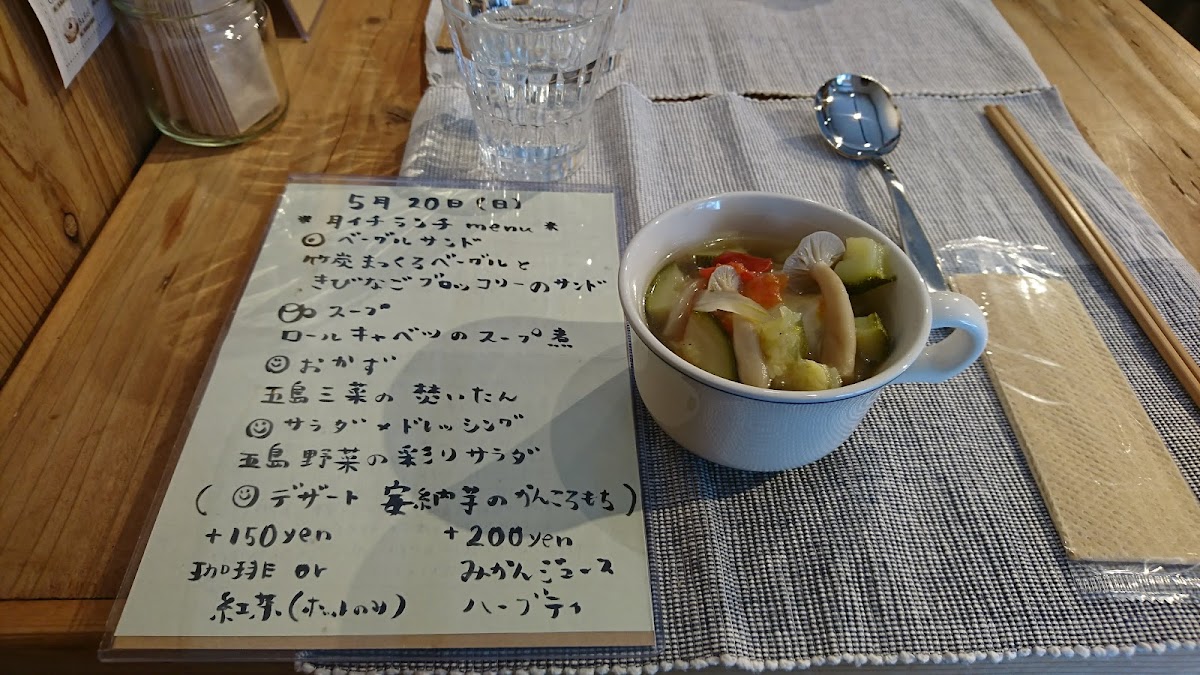 5月20日(日)
* 月イチランチ menu *
ベーグルサンド
竹炭まっくろベーグルと
きびなごブロッコリーのサンド
スープ
ロールキャベツのスープ煮
おかず
五島三菜の焚いたん
サラダ×ドレッシング
五島野菜の彩りサラダ
(デザート 安納芋のかんころもち)
+150yen +200yen
珈琲 or みかんジュース
紅茶(ホットのみ) ハーブティ